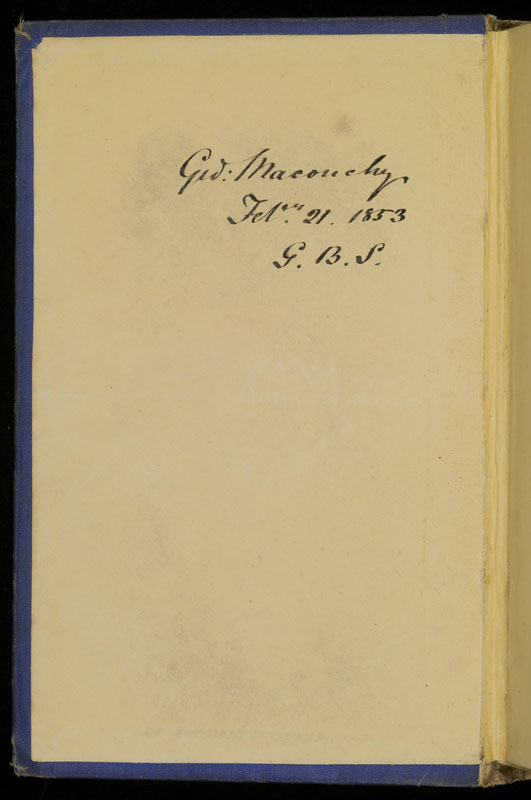 Gid: Maconchy
Feb.ry 21. 1853
G. B. S.